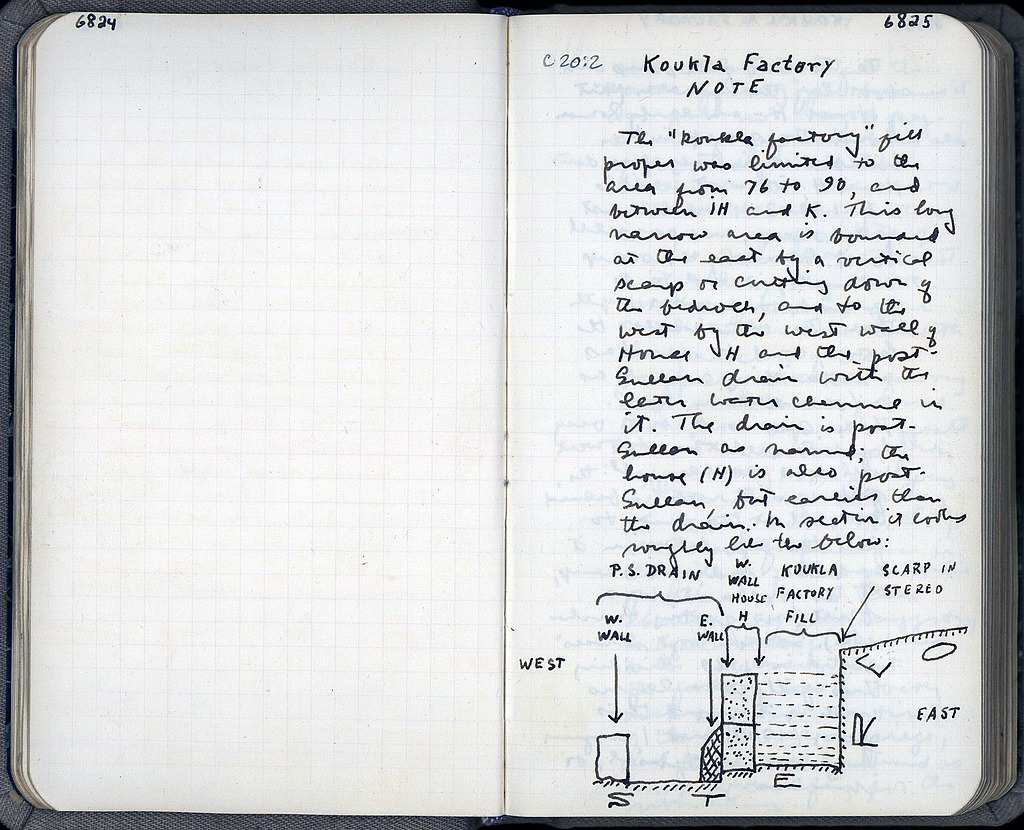 6824
6825
C 20:2
Koukla Factory
NOTE
The "koukla factory" fill
proper was limited to the
area from 76 to 90, and
between IH and K. This long
narrow area is bounded
at the east by a vertical
scarp or cutting down of
the bedrock, and to the
west by the west wall of
House H and the post-
Sullan drain with the
later water channel in
it. The drain is post-
Sullan as named; the
house (H) is also post-
Sullan, but earlier than
the drain. In section it looks
roughly like the below:
P.S. DRAIN
W. WALL HOUSE H
KOUKLA FACTORY FILL
SCARP IN STEREO
W. WALL
E. WALL
WEST
EAST
S T E R E O